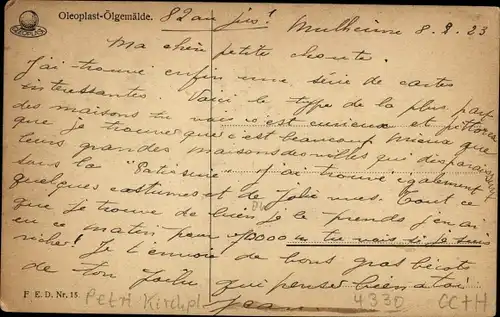 Oleoplast-Ölgemälde.
82 au jus!
Mulheim 8.2.23
Ma chère petite choute.
J'ai trouvé enfin une série de cartes
intéressantes Voici le type de la plus part
des maisons tu vois c'est curieux et pittoresque
que je trouve que c'est beaucoup mieux que
leurs grandes maisons des villes qui disparaissent
sous la "Patisserie" J'ai trouvé également
quelques costumes et de jolies vues. Tout ce
que je trouve de bien je le prends j'en ai
eu ce matin pour 70000 M tu vois si je suis
riche! Je t'envoie de bons gros bécots
de ton Jojo qui pense bien à toi
Jean
F. E. D. Nr. 15.
PETRI Kirchpl
4330
CC+H